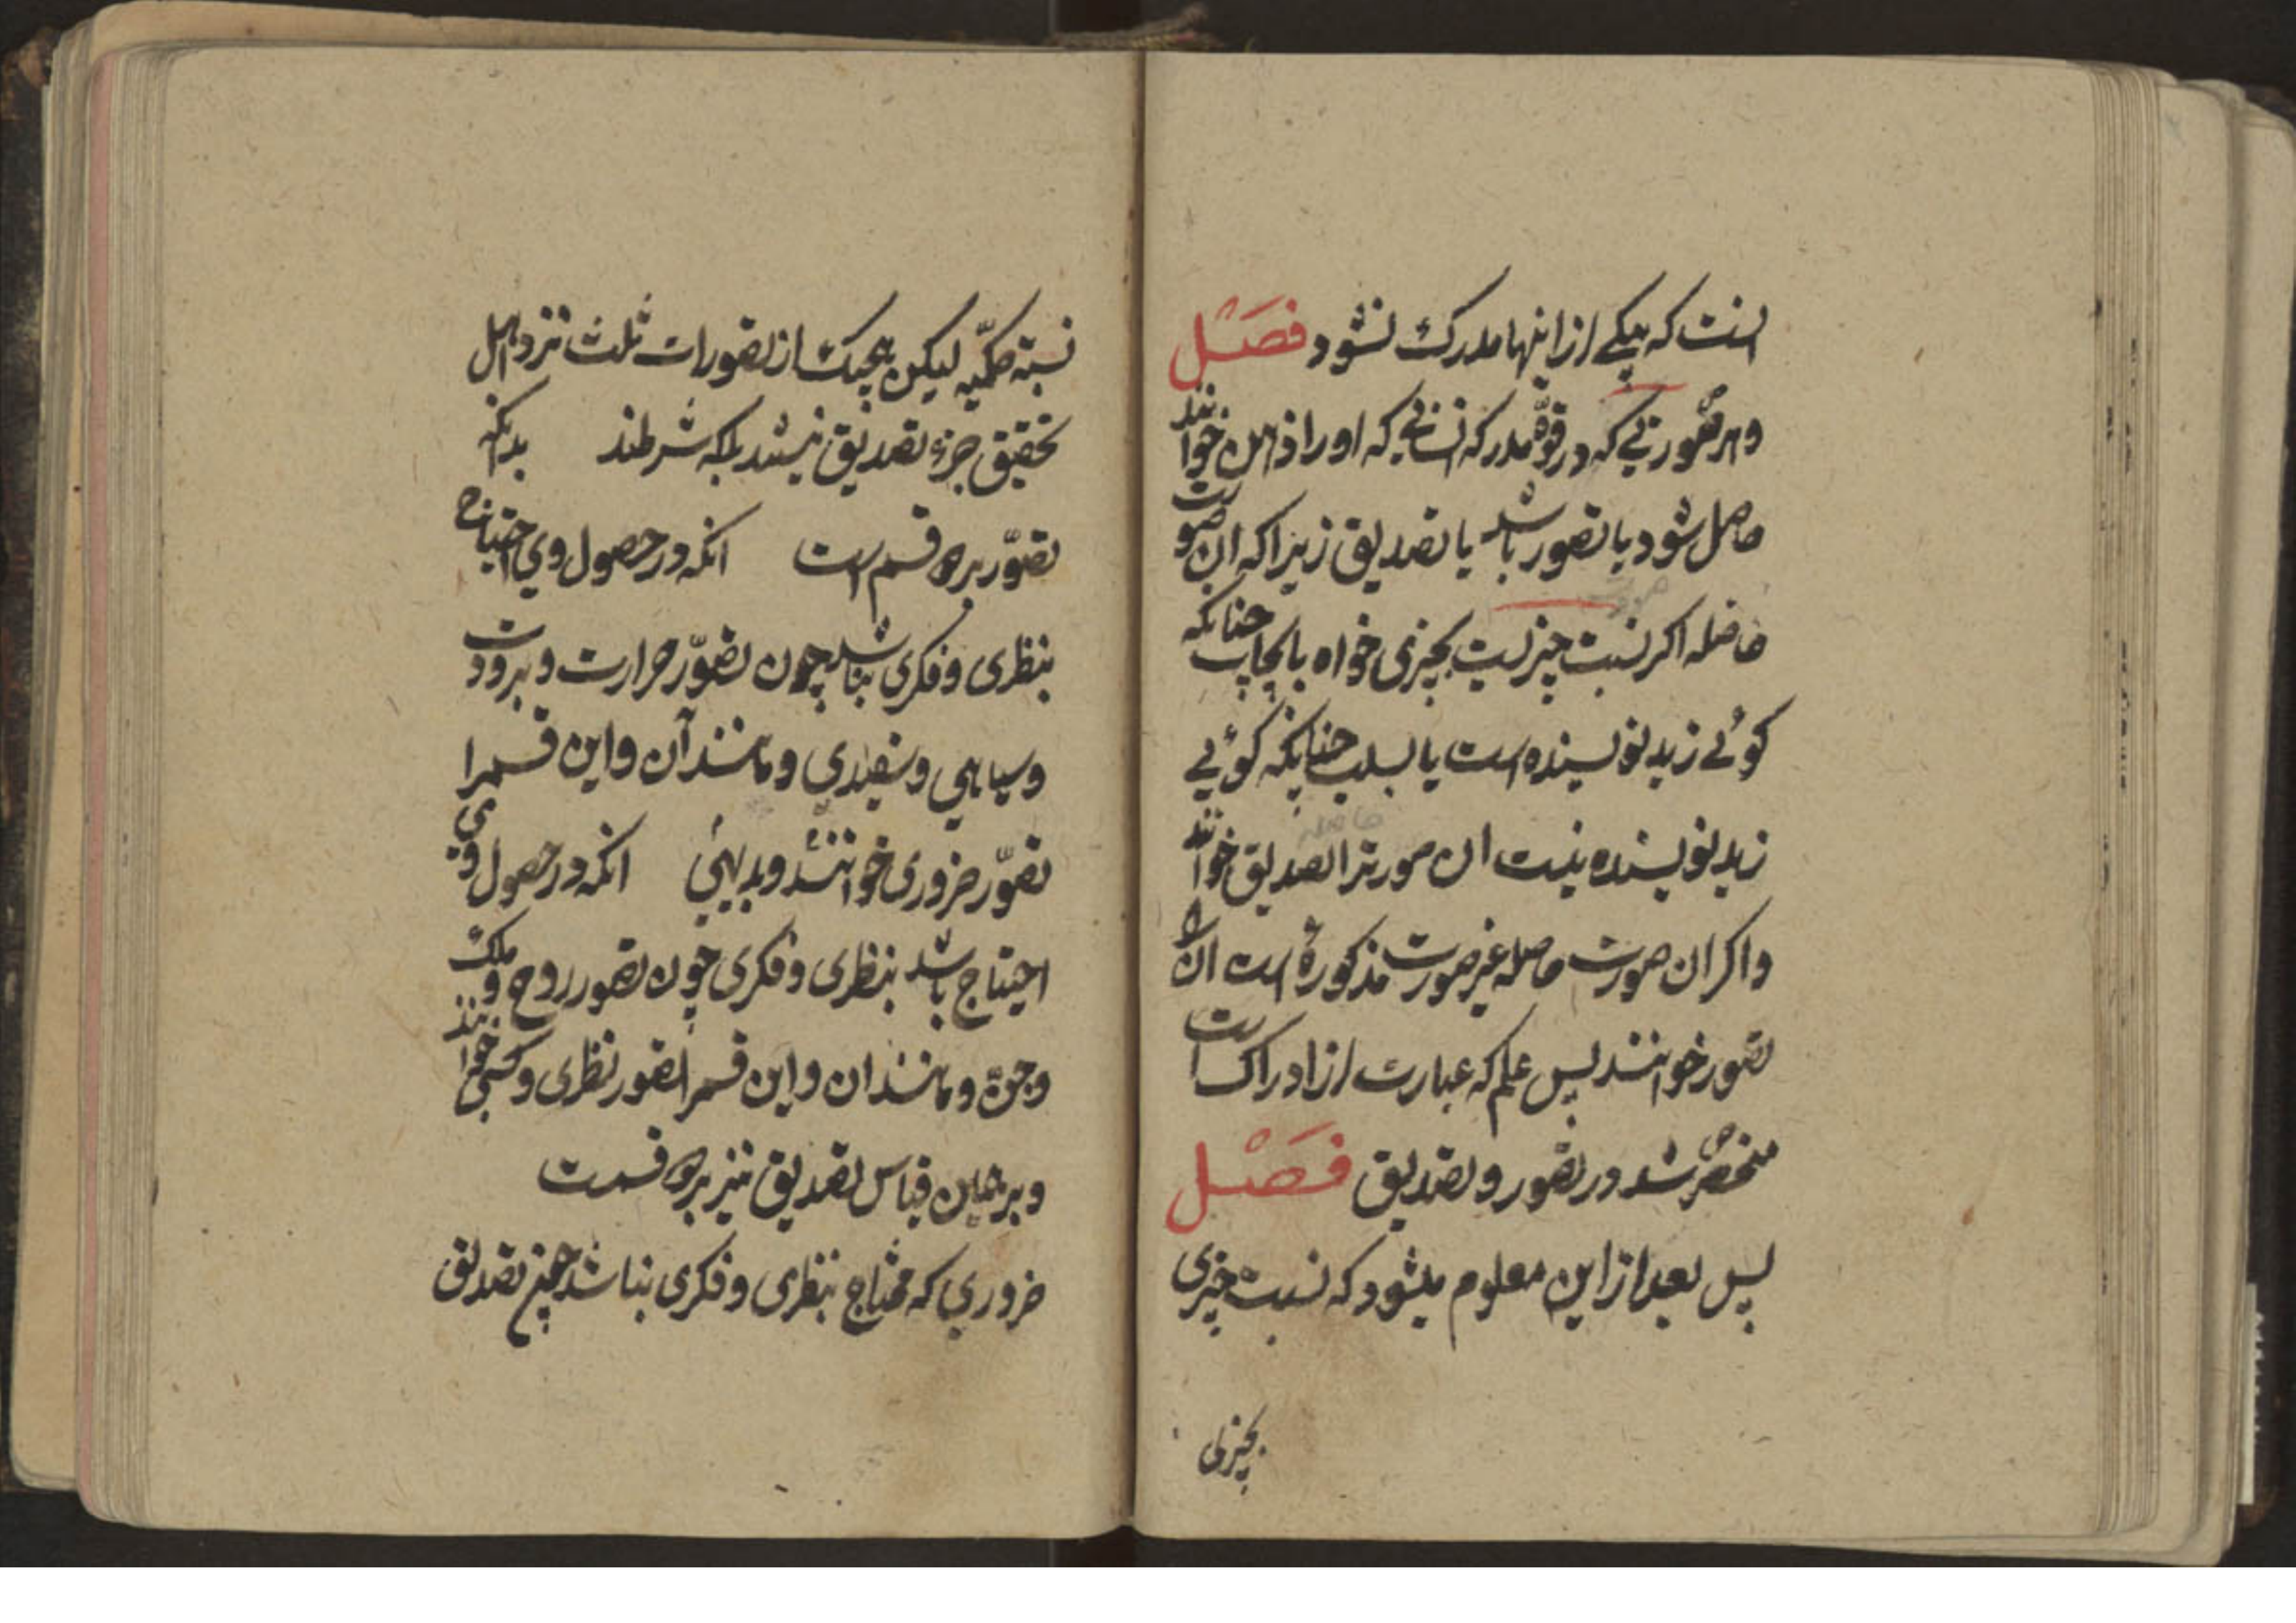 است که یکی از اینها مدرک نشود فصل
و هر صورتی که در قوّهٔ مدرکه انسانی که او را ذهن خوانند
حاصل شود یا تصور باشد یا تصدیق زیرا که ان صورت
حاصله اکر نسبت چیزیست بچیزی خواه بایجاب چنانکه
کوئی زید نویسنده است یا بسلب چنانکه کوئی
زید نویسنده نیست ان صورترا تصدیق خوانند
حاصله
و اکر ان صورت حاصله غیر صورت مذکوره است انرا
تصور خوانند پس علم که عبارت از ادراک است
منحصر شد در تصور و تصدیق فصل
پس بعد از این معلوم میشود که نسبت چیزی
بچیزی
نسبة حکمیّه لیکن هیچیک از تصورات ثلث نزد اهل
تحقیق جزء تصدیق نیستند بلکه شرطند بدانکه
تصوّر بر دو قسم است انکه در حصول وی احتیاج
بنظری و فکری نباشد چون تصوّر حرارت و برودت
و سیاهی و سفیدی و مانند آن و این قسمرا
تصوّر ضروری خوانند و بدیهی انکه در حصول وی
احتیاج باشد بنظری و فکری چون تصور روح و ملک
و جنّ و مانند ان و این قسمرا تصور نظری و کسبی خوانند
و بر همین قیاس تصدیق نیز بر دو قسمت
ضروری که محتاج بنظری و فکری نباشد همچنین تصدیق